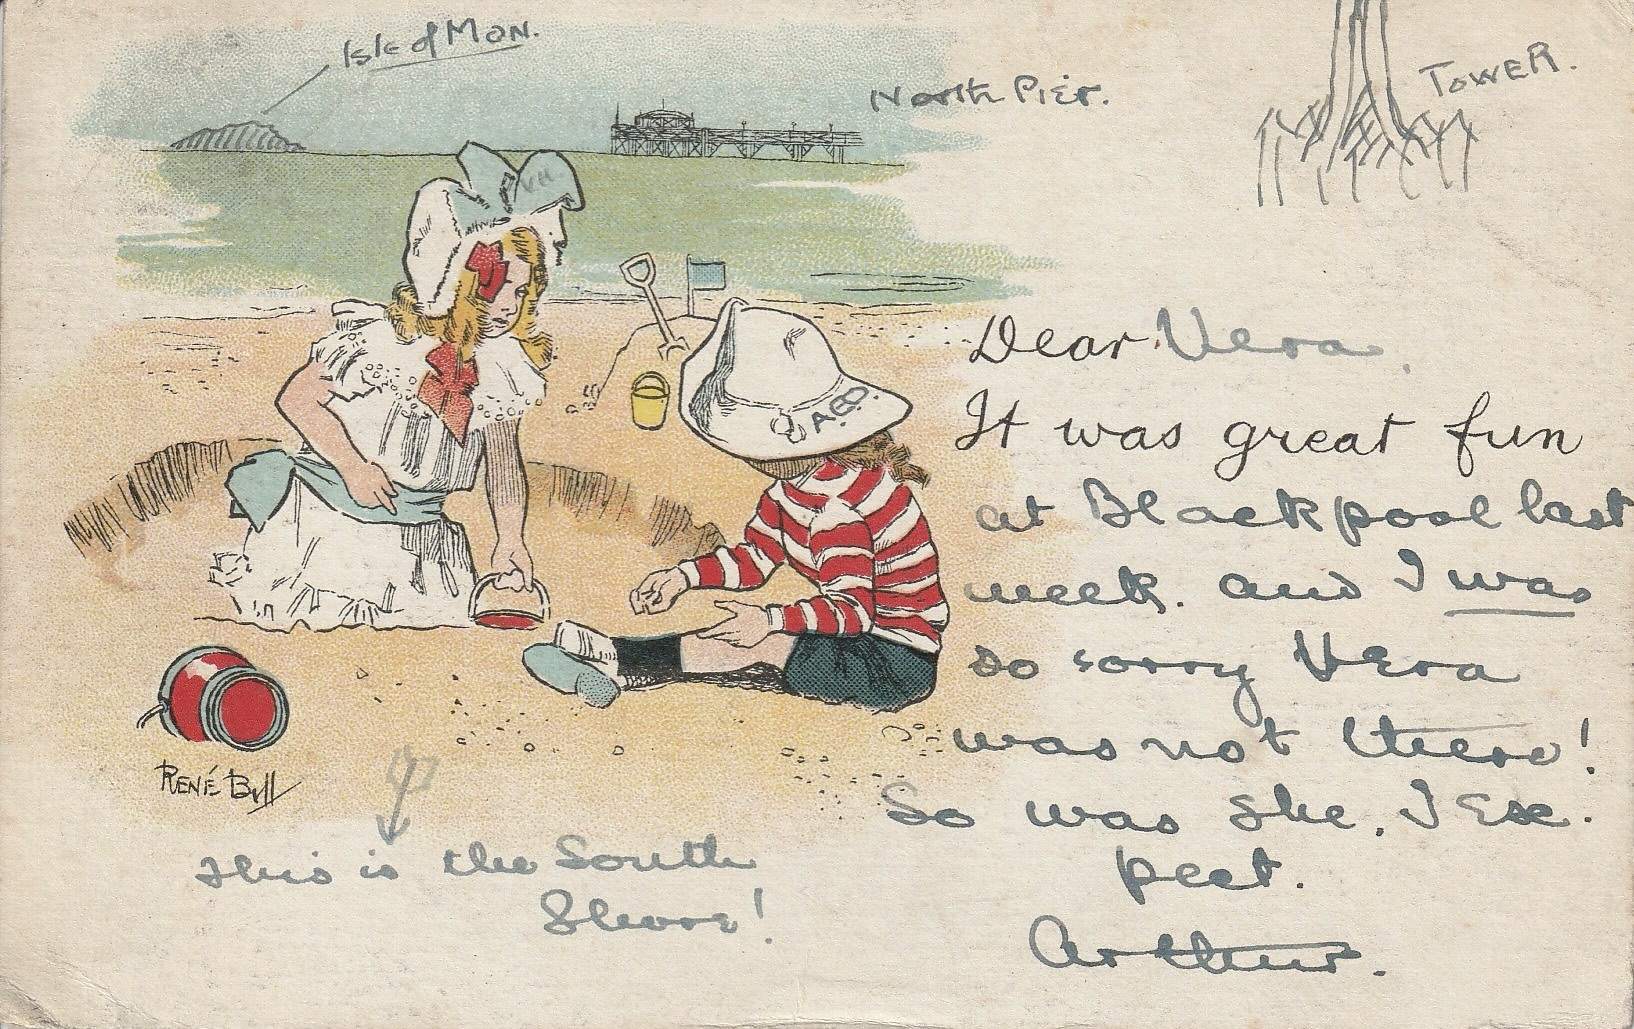 Isle of Man.
North Pier.
TOWER.
V.H.
A.E.D.
Dear Vera
It was great fun
at Blackpool last
week. and I was
so sorry Vera
was not there!
So was she, I Ex.
pect.
Arthur.
RENÉ BULL
This is the South
Shore!